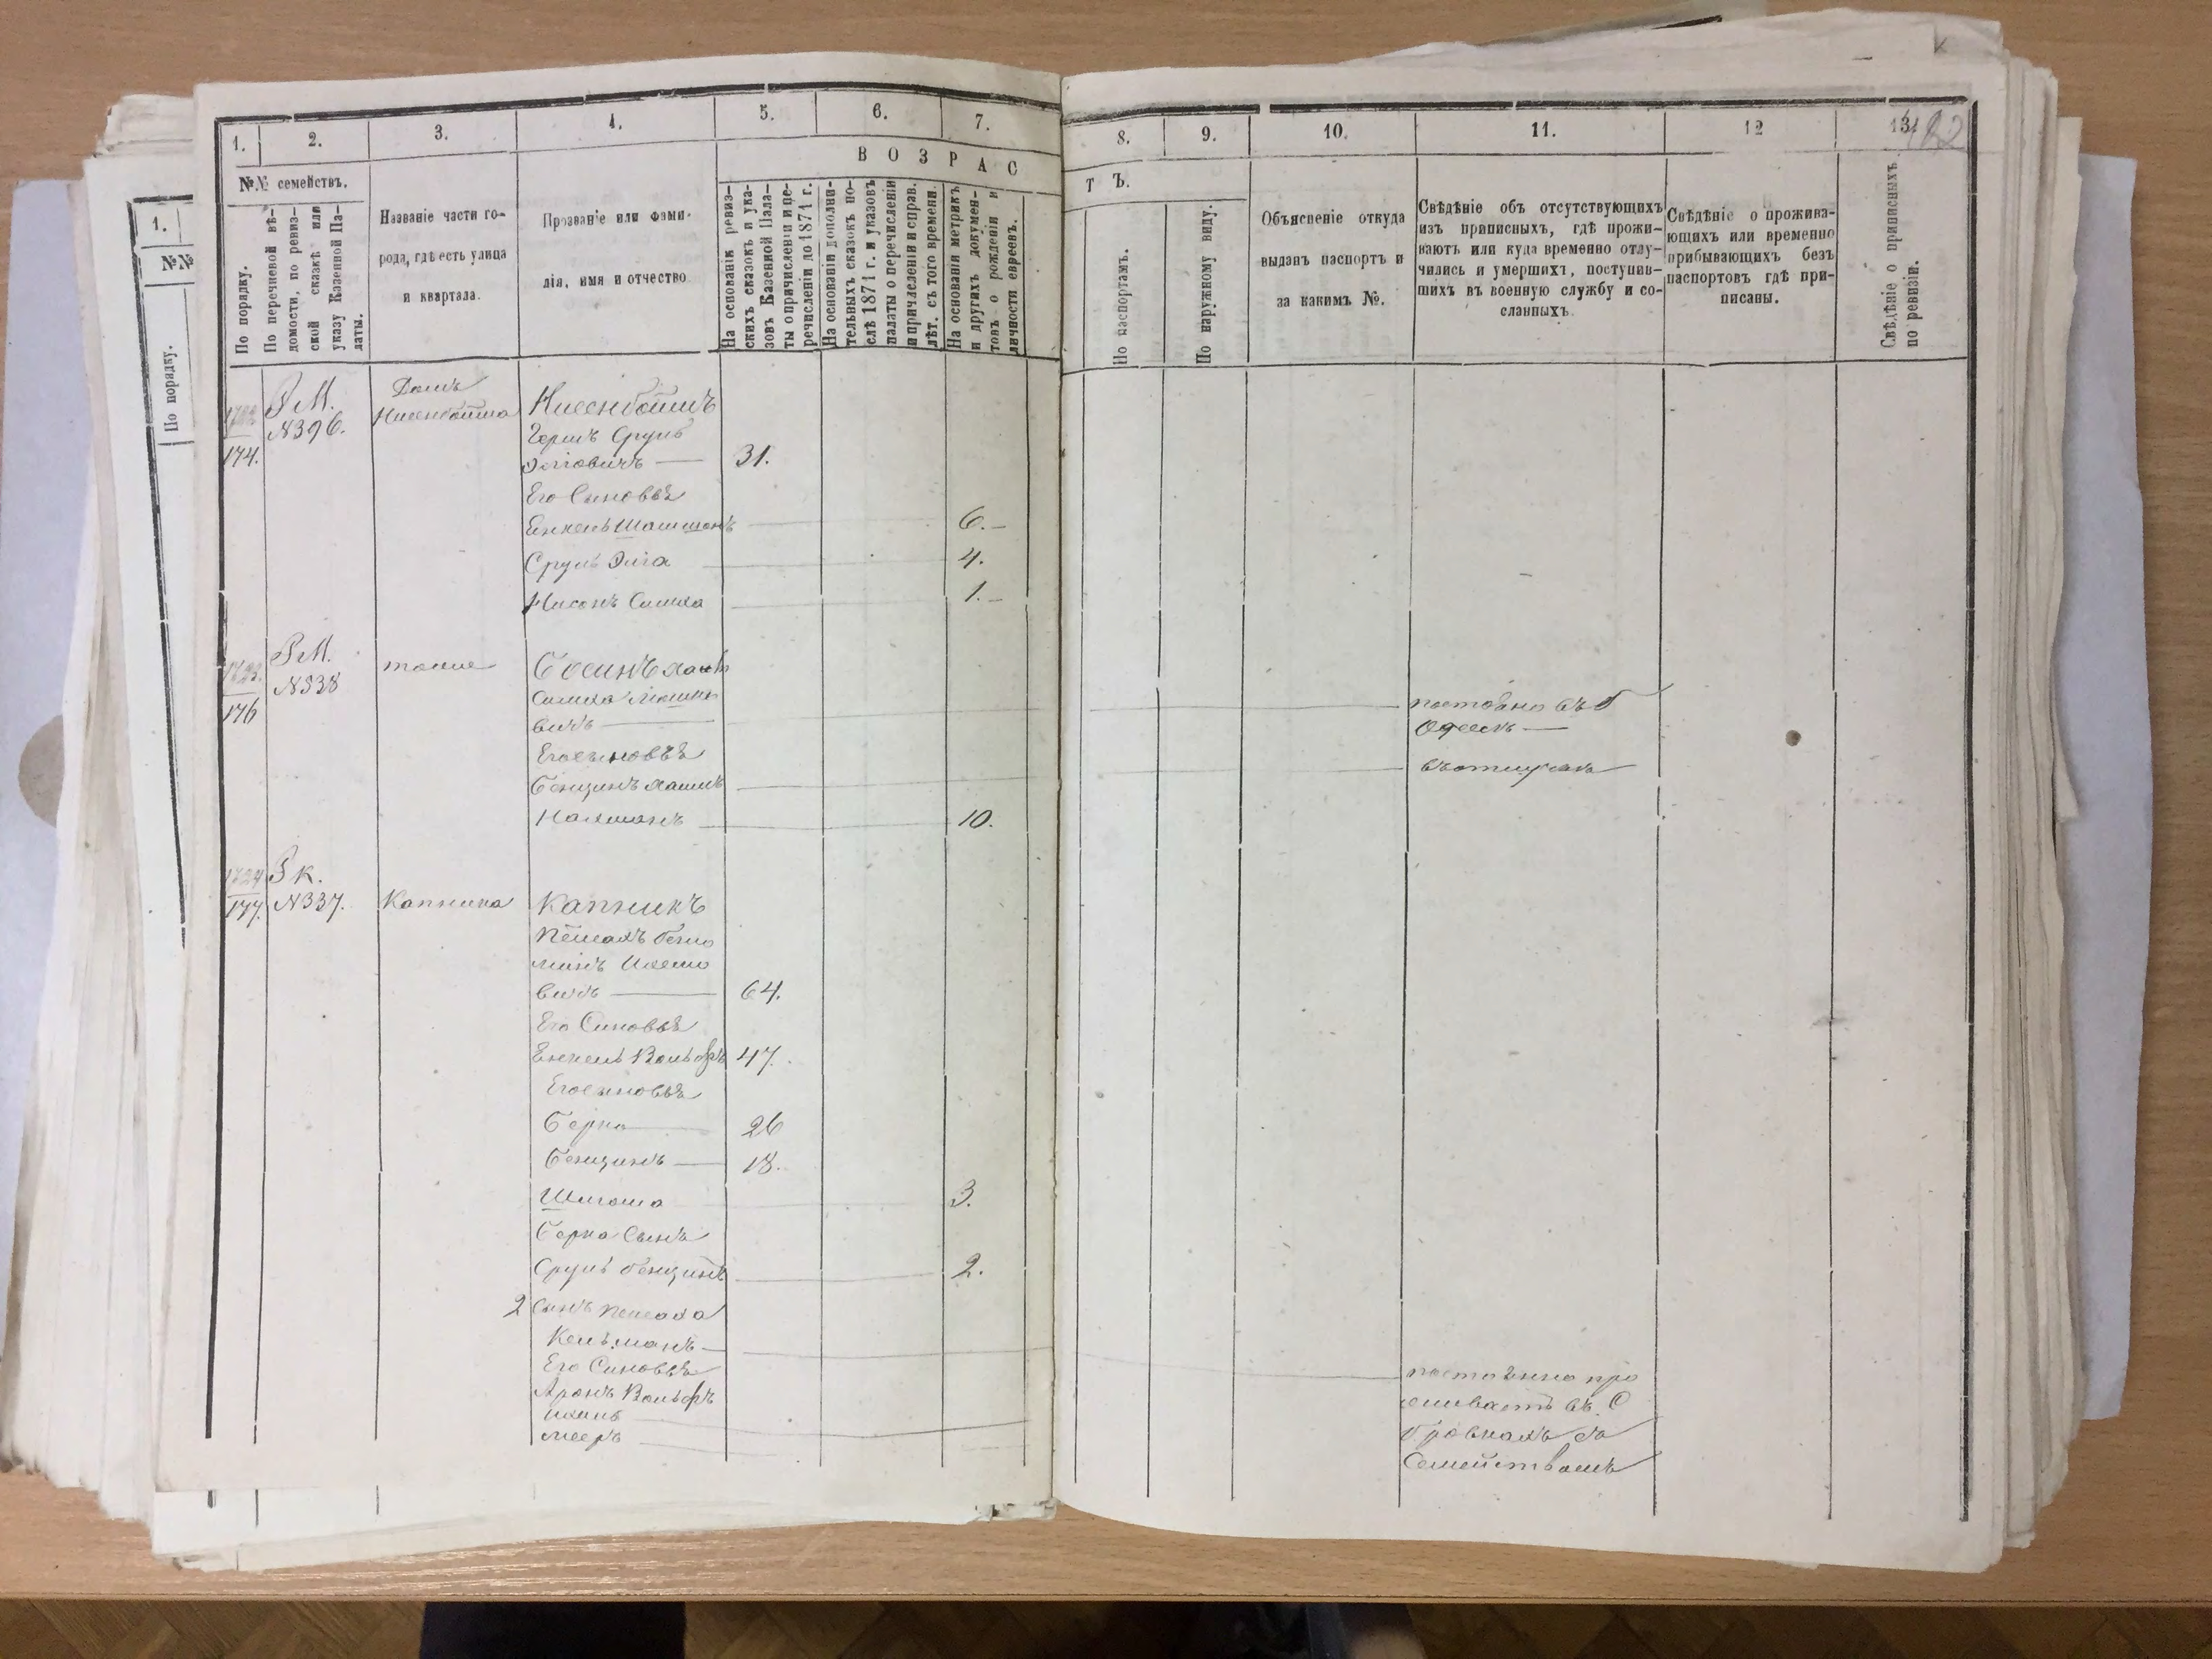 1. 2. 3. 4. 5. 6. 7.
8. 9. 10. 11. 12 13.
№№ семействъ.
По порядку.
По перечневой вѣ-
домости, по ревиз-
ской сказкѣ или
указу Казенной Па-
латы.
Названіе части го-
рода, гдѣ есть улица
и квартала.
Прозваніе или фами-
лія, имя и отчество
В О З Р А С
Т Ъ.
На основаніи ревиз-
скихъ сказокъ и ука-
зовъ Казенной Пала-
ты о причисленіи и пе-
речисленіи до 1871 г.
На основаніи дополни-
тельныхъ сказокъ по-
слѣ 1871 г. и указовъ
палаты о перечисленіи
и причисленіи и справ.
лѣт. съ того времени.
На основаніи метрикъ
и другихъ докумен-
товъ о рожденіи и
личности евреевъ.
По паспортамъ.
По наружному виду.
Объясненіе откуда
выданъ паспортъ и
за какимъ №.
Свѣдѣніе объ отсутствующихъ
изъ приписныхъ, гдѣ прожи-
ваютъ или куда временно отлу-
чились и умершихъ, поступив-
шихъ въ военную службу и со-
сланныхъ
Свѣдѣніе о прожива-
ющихъ или временно
прибывающихъ безъ
паспортовъ гдѣ при-
писаны.
Свѣдѣніе о приписныхъ
по ревизіи.
1.
№№
По порядку.
174.
№396.
Домъ
Нисенбойма
Нисенбоймъ
Гершъ Сруль
31.
Его Сыновья
6.
Сруль Эліа
4.
Нисонъ Симха
1.
176
№338
тоже
вичъ
Одессѣ
Его сыновья
Бенціонъ Хаимъ
въ отлучкѣ
Нахманъ
10.
177.
№337.
Капника
Капникъ
Пейсахъ Беню
минъ
вичъ
64.
Его Сыновья
Енкель Вольфъ 47.
Его сыновья
Берко
26
Бенціонъ
18.
Шлюма
3.
Берка Сынъ
Сруль Бенціонъ
2.
2 Сынъ Пейсаха
Кельманъ
Его Сыновья
Аронъ Вольфъ
Мееръ
постоянно про
живаетъ въ С
съ
Семействомъ